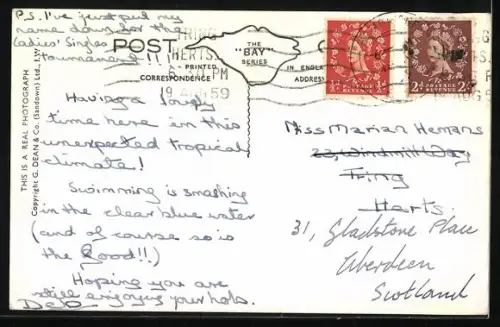 P.S. I've just put my
name down for the
Ladies' Singles
tournament!!
POST
PRINTED
CORRESPONDENCE
THE
"BAY"
SERIES
IN ENGLAND
ADDRESS
TRING
HERTS.
PM
19 AUG 59
½d
POSTAGE
REVENUE
½d
2½d
POSTAGE
REVENUE
2½d
THIS IS A REAL PHOTOGRAPH
Copyright G. DEAN & Co. (Sandown) Ltd., I.W.
Having a lovely
time here in this
unexpected tropical
climate!
Swimming is smashing
in the clear blue water
(and of course so is
the food!!)
Hoping you are
still enjoying your hols.
Miss Marian Hemans
23, Windmill Way
Tring
Herts.
31, Gladstone Place
Aberdeen
Scotland